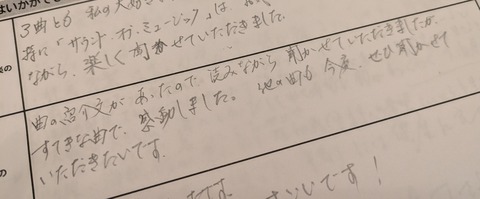 はいかがで
3曲とも 私の大好き
特に「サウンド・オブ・ミュージック」は、
ながら、楽しく聞かせていただきました。
曲の紹介文があったので、読みながら 聞かせていただきましたが、
すてきな曲で、感動しました。他の曲も 今度、ぜひ聞かせて
いただきたいです。
です！